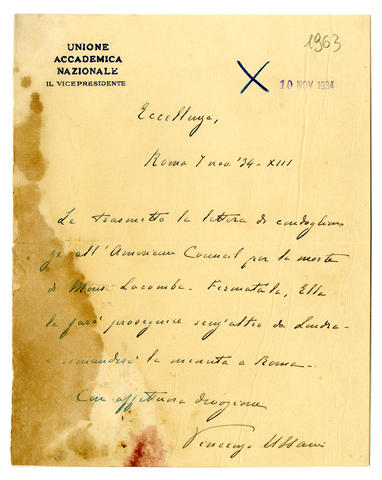 1963
UNIONE
ACCADEMICA
NAZIONALE
IL VICEPRESIDENTE
X
10 NOV 1934
Eccellenza,
Roma 7 nov. '34-XIII
Le trasmetto la lettera di condoglian
ze all'American Council per la morte
di Mons. Lacombe. Firmatala, Ella
la farà proseguire senz'altro da Londra
e rimanderà la minuta a Roma.
Con affettuosa devozione
Vincenzo Ussani